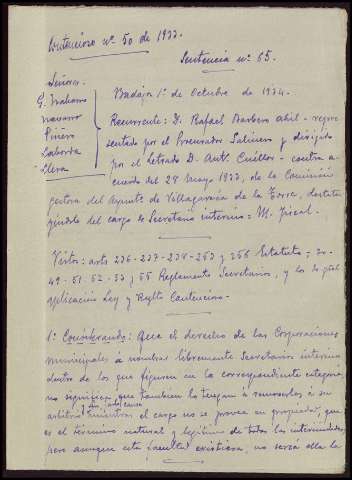 Contencioso nº 50 de 1933.
Sentencia nº 65.
Señores.
Navarro
Piñero
Laborda
Llera
Badajoz 1º de Octubre de 1934.
Recurrente: D. Rafael Barbero Abril - repre
sentado por el Procurador Salinero y dirigido
por el Letrado D. Antº Cuéllar - contra a-
cuerdo del 28 mayo 1933, de la Comisión
gestora del Ayunto de Villagarcía de la Torre, destitu
yéndole del cargo de Secretario interino = M. Fiscal.
Vistos: arts 236-237-238-253 y 256 Estatuto =
49-51-52-53 y 55 Reglamento Secretarios, y los de gral
aplicación Ley y Regltº Contencioso -
1º Considerando: Que el derecho de las Corporaciones
municipales á nombrar libremente Secretarios interinos
dentro de los que figuren en la correspondiente categoría
no significa que tambien la tengan á removerlos á su
arbitrio sin justa causa mientras el cargo no se provea en propiedad, que
es el término natural y legítimo de todas las interinidades
pero aunque esta facultad existiera, no sería ella la